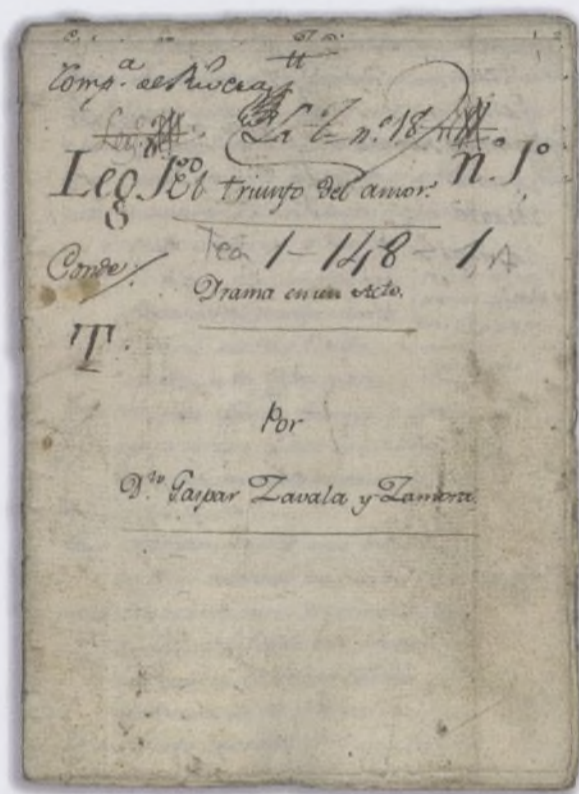 Comp.ª de Rivera
La T n.º 18
Leg. 1.º El triunfo del amor. n.º 1º
8
Tea 1-148-1, A
Conde
Drama en un Acto.
T.
Por
D.ⁿ Gaspar Zavala y Zamora.